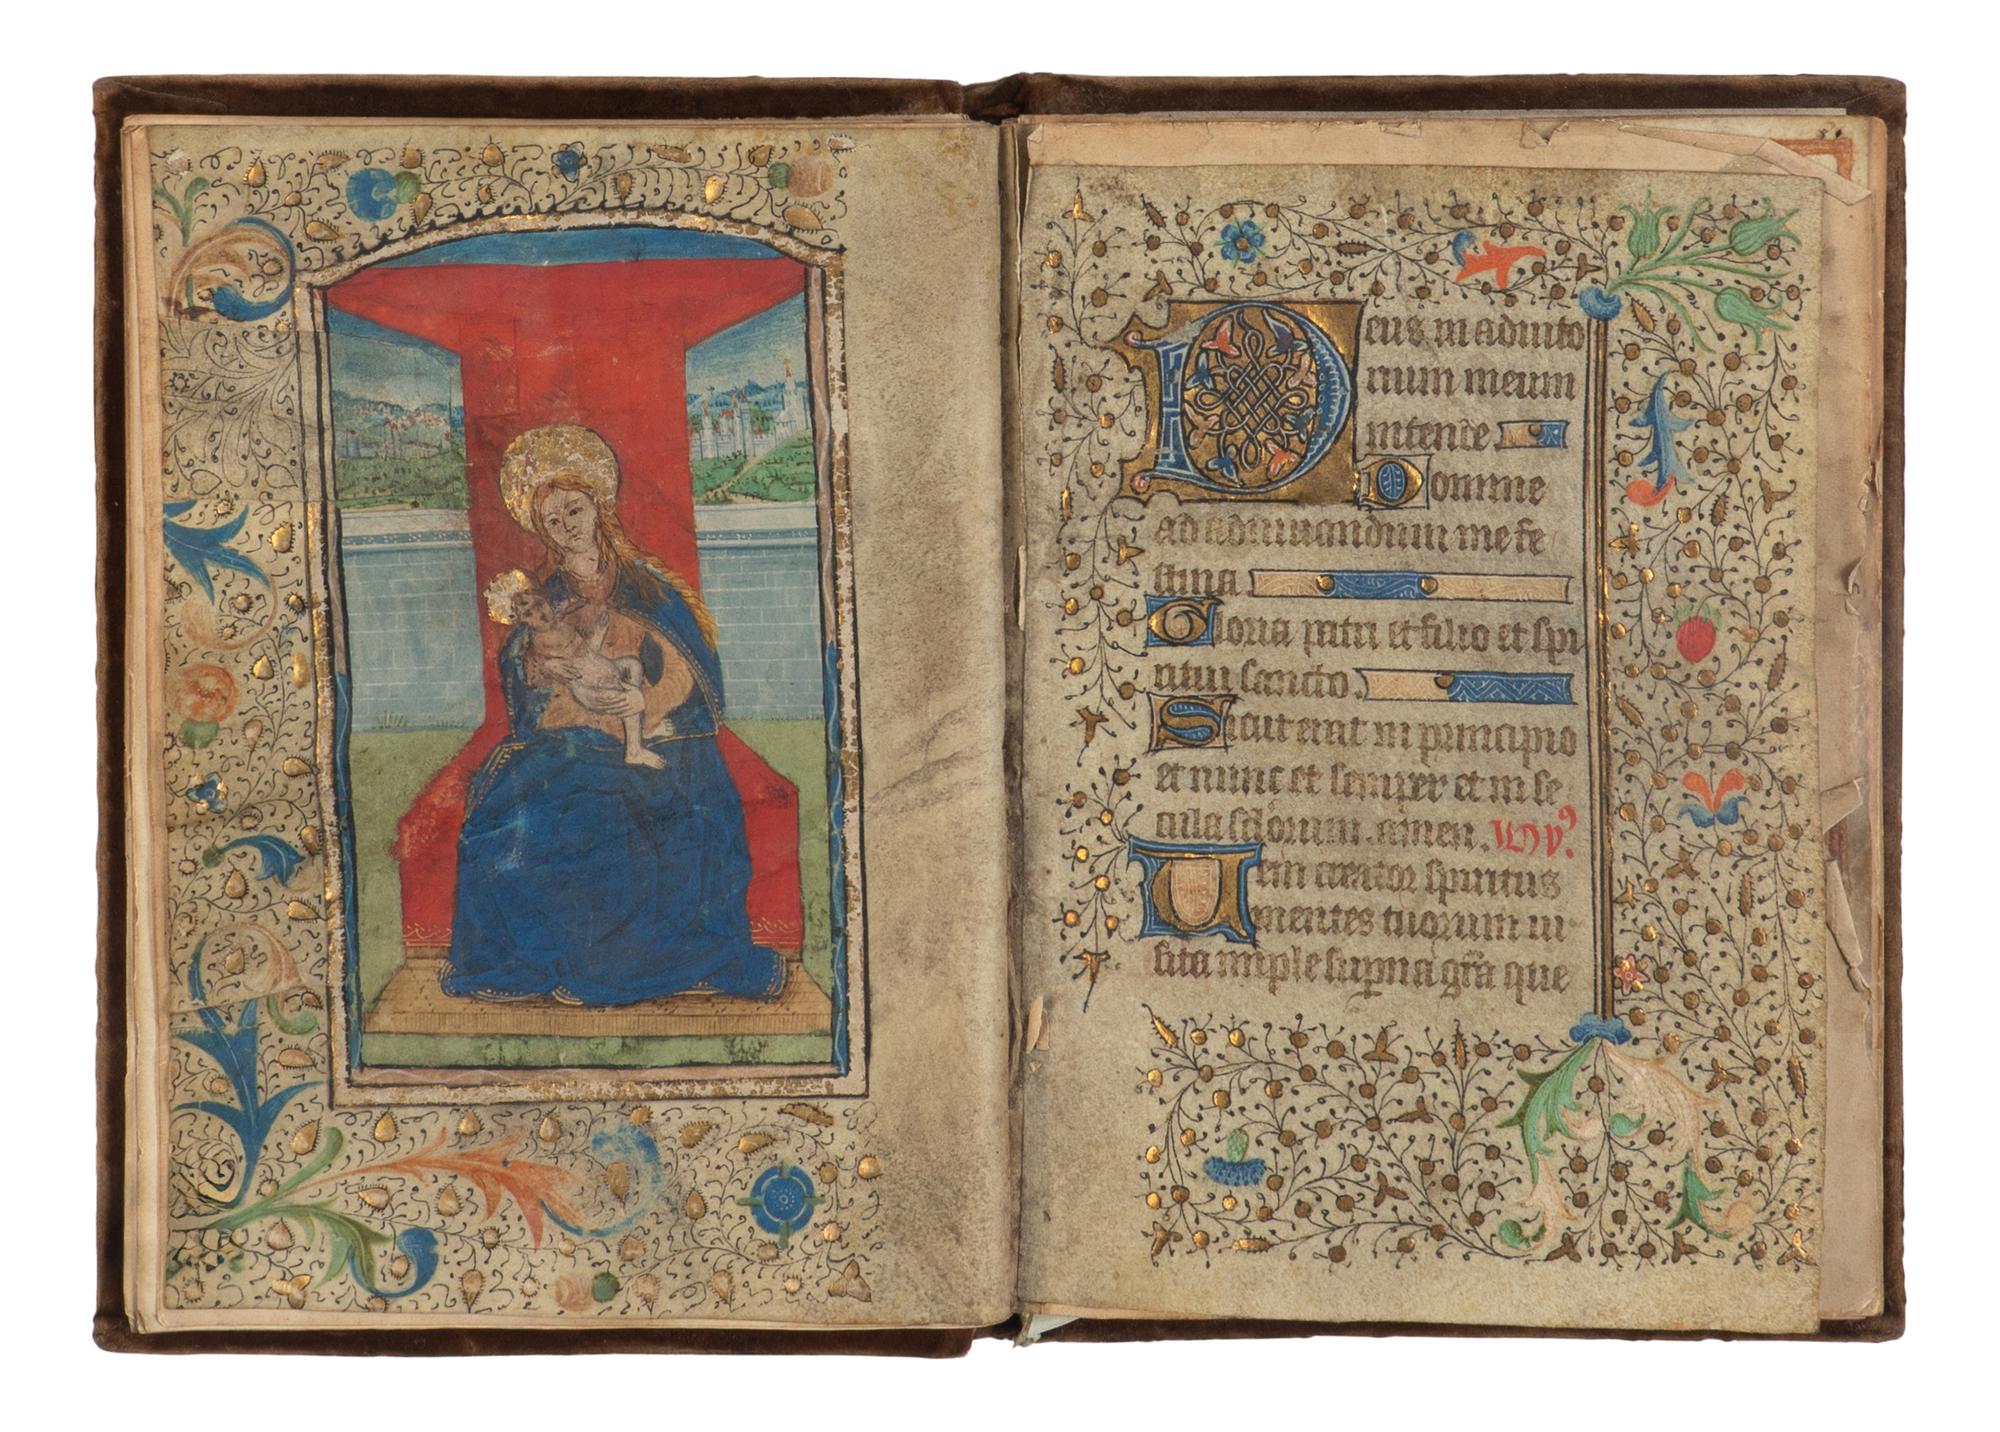 Deus in adiuto
rium meum
intende
Domine
ad adiuuandum me fe
stina
Gloria patri et filio et spi
ritui sancto.
Sicut erat in principio
et nunc et semper et in se
cula sclorum. amen. ymꝰ.
Ueni creator spiritus
mentes tuorum ui
sita imple sup̲na gr̃a que